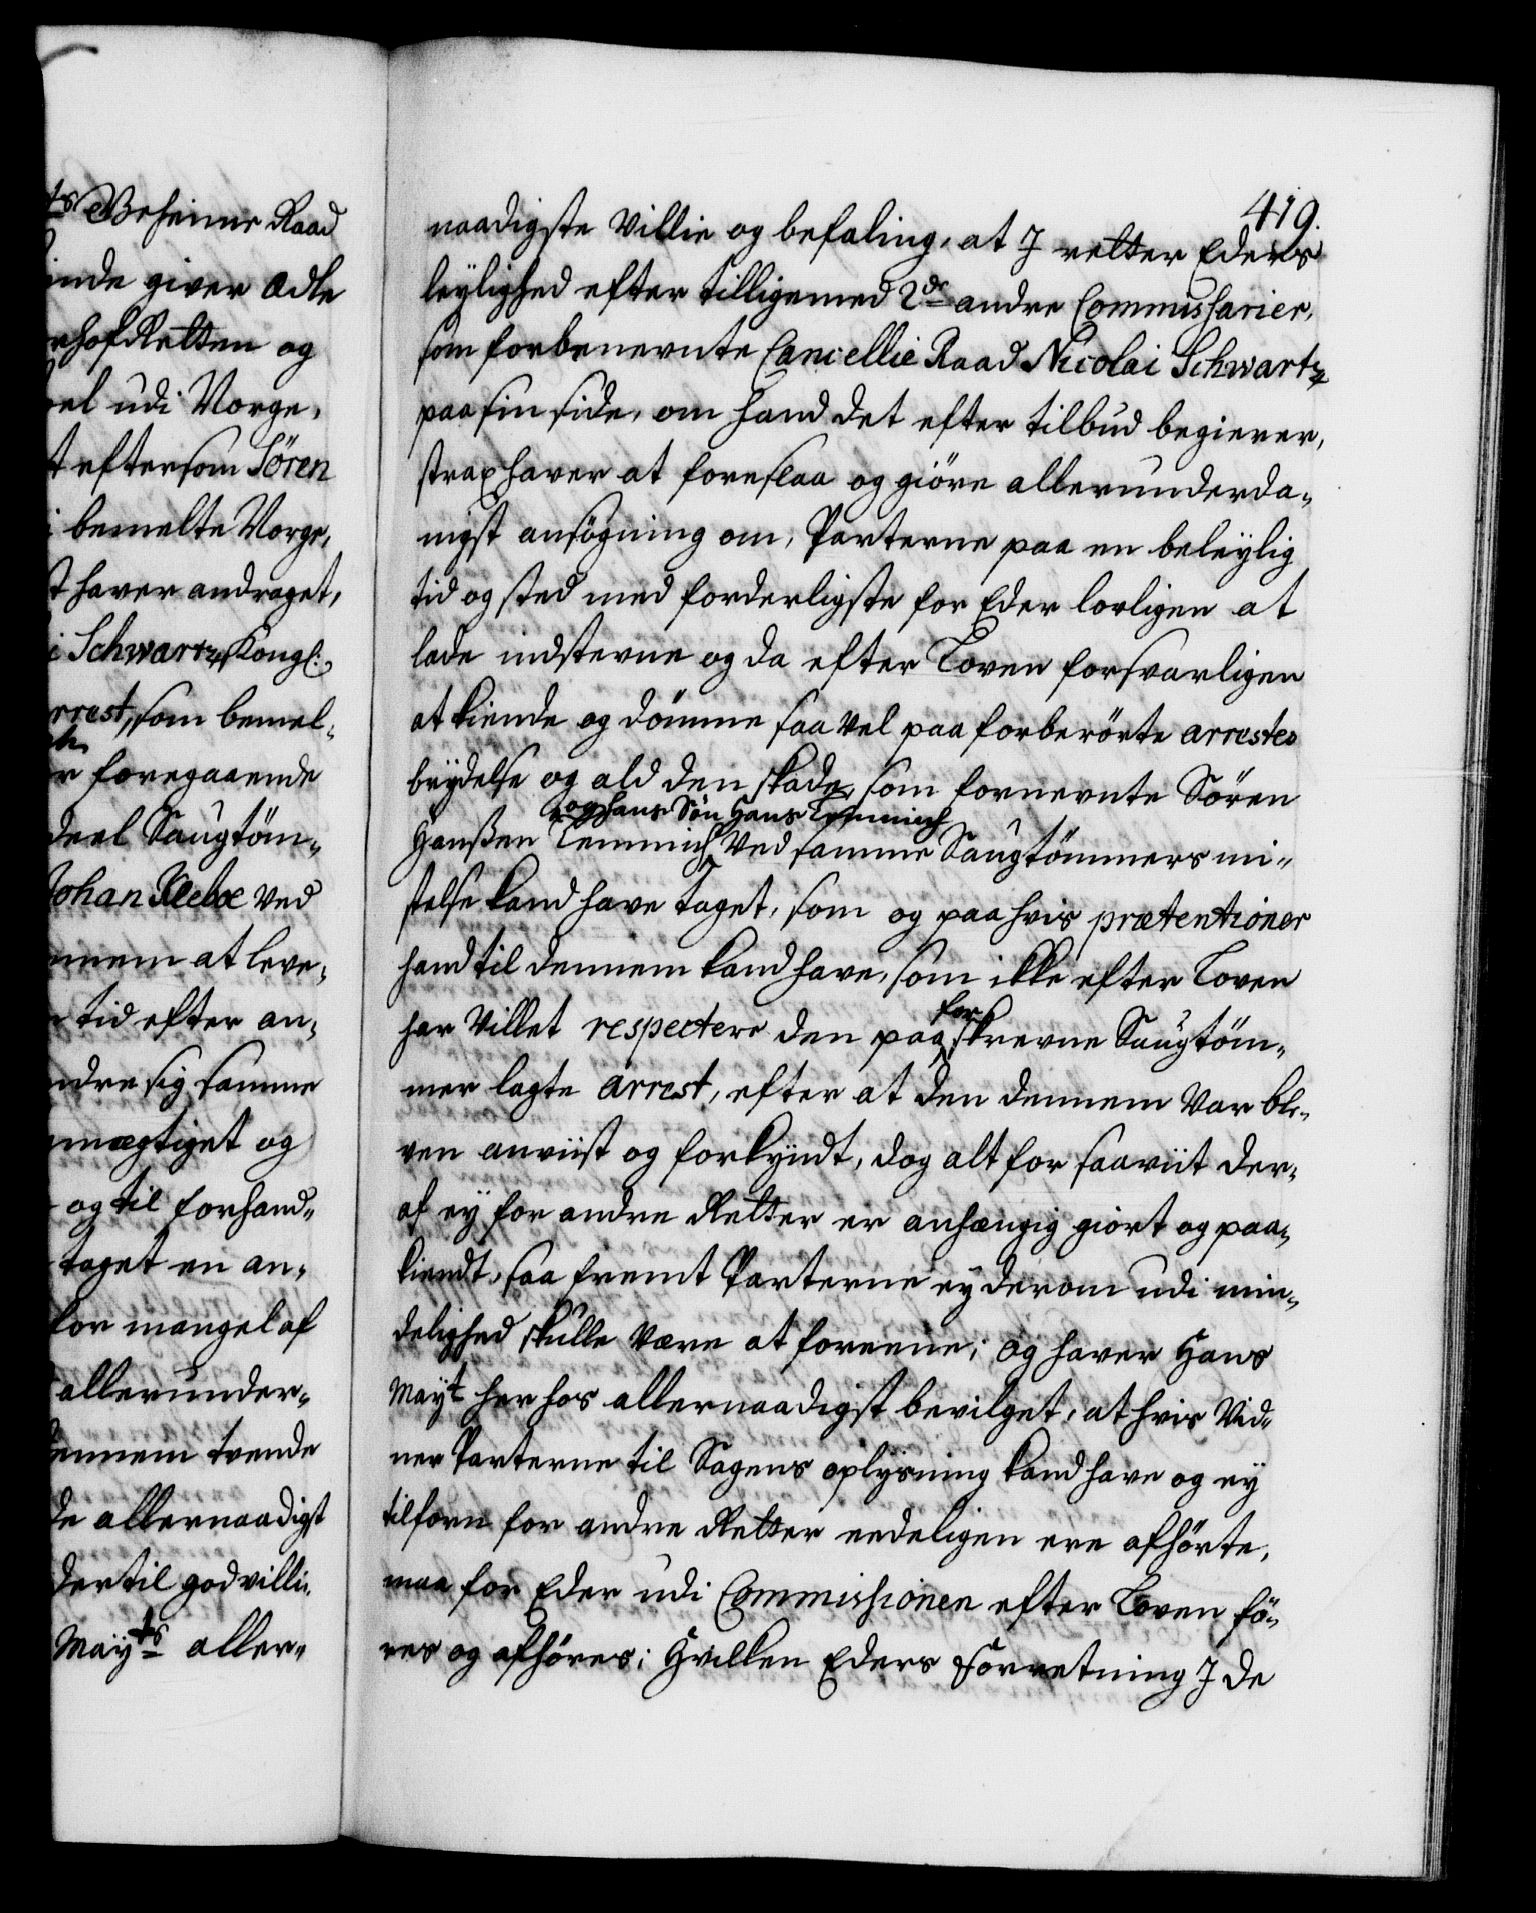 ts Geheime Raad
inde giver Adle
rhofRetten og
el udi Norge,
t eftersom Sören
i bemelte Norge,
t haver andraget,
i Schwartz, Kongl:
rrest, som bemel-
r foregaaende
deel Saugtöm-
Johan Klebe ved
nnem at leve-
tid efter an-
ndre sig samme
mægtiget og
og til forhand-
taget en an-
for mangel af
allerunder-
dennem tvende
de allernaadigst
dertil godvilli-
Mayts aller-
419.
naadigste Villie og befaling, at J retter Eders
leylighed efter tilligemed 2de andre Commissarier,
som forbenevnte Cancellie Raad Nicolai Schwartz
paa sin side, om hand det efter tilbud begierer,
strax haver at foreslaa og giöre allerunderda-
nigst ansögning om, Parterne paa en beleylig
tid og sted med forderligste for Eder lovligen at
lade indstevne og da efter Loven forsvarligen
at kiende og dömme saa vel paa forberörte arrestes
brydelse og ald den skade, som fornevnte Sören
og hans Sön Hans Lemmich
Hanßen Lemmich ved samme Saugtömmers mi-
stelse kand have taget, som og paa hvis prætentioner
hand til dennem kand have, som ikke efter Loven
har villet respectere den paa forskrevne Saugtöm-
mer lagte arrest, efter at den dennem var ble-
ven anviist og forkyndt, dog alt for saaviit der-
af ey for andre Retter er anhængig giort og paa-
kiendt, saa fremt Parterne ey derom udi min-
delighed skulle være at foreene; og haver Hans
Mayt her hos allernaadigst bevilget, at hvis Vid-
ner Parterne til Sagens oplysning kand have og ey
tilforn for andre Retter eedeligen ere afhörte,
maa for Eder udi Commissionen efter Loven fö-
res og afhöres; Hvilken Eders Forretning J de